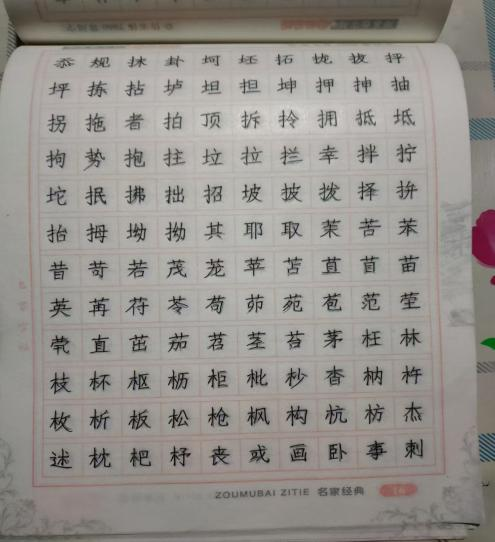 忝规抹卦坷坯拓拢拔抨
坪拣拈垆坦担坤押抻抽
拐拖者拍顶拆拎拥抵坻
拘势抱拄垃拉拦幸拌拧
坨抿拂拙招坡披拨择拚
抬拇坳拗其耶取茉苦苯
昔苛若茂茏苹苫苴苜苗
英苒苻苓苟茆苑苞范茔
茕直茁茄苕茎苔茅枉林
枝杯枢枥柜枇杪杳枘杵
枚析板松枪枫构杭枋杰
述枕杷杼丧或画卧事刺
ZOUMUBAI ZITIE 名家经典 16